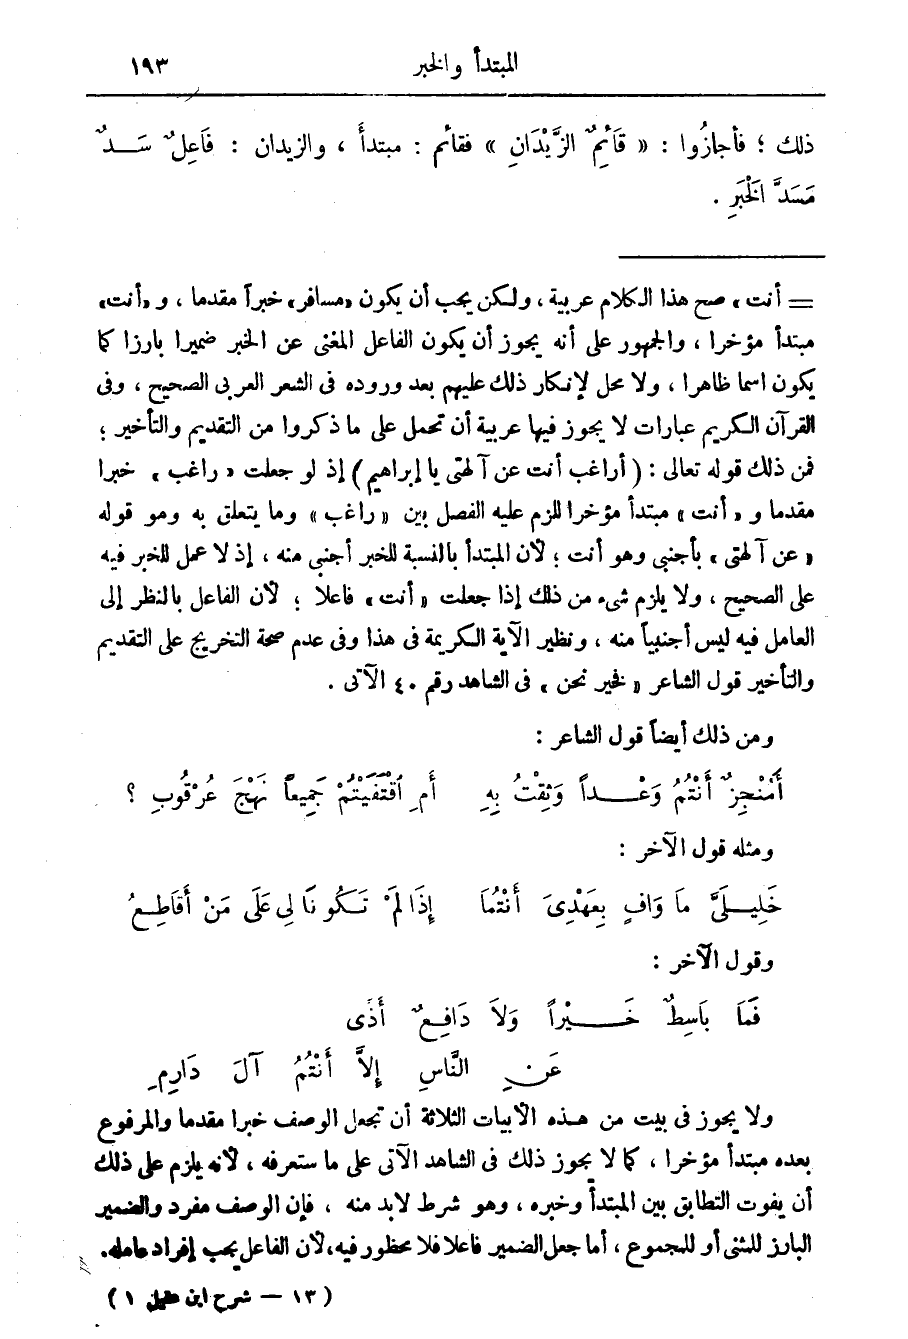 المبتدأ والخبر ١٩٣
ذلك ؛ فأجازُوا : « قَائِمٌ الزَّيْدَانِ » فقائم : مبتدأ ، والزيدان : فَاعِلٌ سَــدَّ
مَسَدَّ الْخَبَرِ .
= أنت » صح هذا الكلام عربية ، ولكن يجب أن يكون «مسافر» خبراً مقدما ، و «أنت»
مبتدأ مؤخرا ، والجمهور على أنه يجوز أن يكون الفاعل المغنى عن الخبر ضميرا بارزا كما
يكون اسما ظاهرا ، ولا محل لإنكار ذلك عليهم بعد وروده فى الشعر العربى الصحيح ، وفى
القرآن الكريم عبارات لا يجوز فيها عربية أن تحمل على ما ذكروا من التقديم والتأخير ؛
فمن ذلك قوله تعالى : ( أراغب أنت عن آلهتى يا إبراهيم ) إذ لو جعلت « راغب » خبرا
مقدما و « أنت » مبتدأ مؤخرا للزم عليه الفصل بين « راغب » وما يتعلق به وهو قوله
« عن آلهتى » بأجنبى وهو أنت ؛ لأن المبتدأ بالنسبة للخبر أجنبى منه ، إذ لا عمل للخبر فيه
على الصحيح ، ولا يلزم شىء من ذلك إذا جعلت « أنت » فاعلا ؛ لأن الفاعل بالنظر إلى
العامل فيه ليس أجنبياً منه ، ونظير الآية الكريمة فى هذا وفى عدم صحة التخريج على التقديم
والتأخير قول الشاعر « فخير نحن » فى الشاهد رقم ٤٠ الآتى .
ومن ذلك أيضاً قول الشاعر :
أَمُنْجِزٌ أَنْتُمُ وَعْــداً وَثِقْتُ بِهِ أَمِ اقْتَفَيْتُمْ جَمِيعاً نَهْجَ عُرْقُوبِ ؟
ومثله قول الآخر :
خَلِيــلَىَّ مَا وَافٍ بِعَهْدِىَ أَنْتُمَا إِذَا لَمْ تَكُونَا لِى عَلَى مَنْ أُقَاطِعُ
وقول الآخر :
فَمَا بَاسِطٌ خَــيْراً وَلاَ دَافِعٌ أَذًى
عَنِ النَّاسِ إِلاَّ أَنْتُمُ آلَ دَارِمِ
ولا يجوز فى بيت من هذه الأبيات الثلاثة أن تجعل الوصف خبرا مقدما والمرفوع
بعده مبتدأ مؤخرا ، كما لا يجوز ذلك فى الشاهد الآتى على ما ستعرفه ، لأنه يلزم على ذلك
أن يفوت التطابق بين المبتدأ وخبره ، وهو شرط لابد منه ، فإن الوصف مفرد والضمير
البارز للمثنى أو للمجموع ، أما جعل الضمير فاعلا فلا محظور فيه، لأن الفاعل يجب إفراد عامله.
( ١٣ — شرح ابن عقيل ١ )